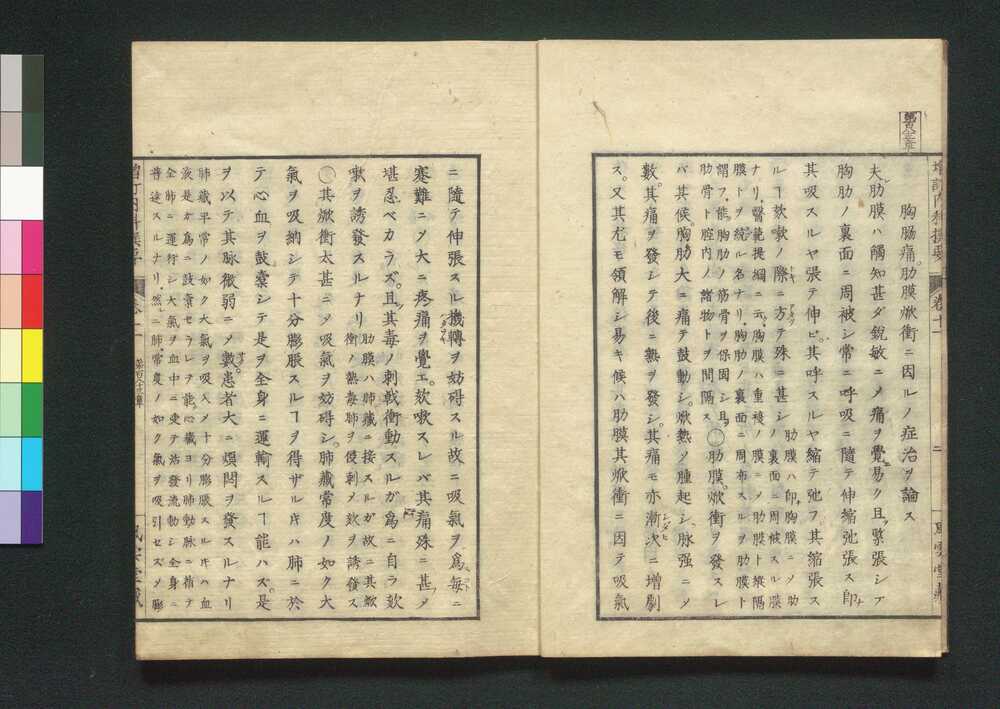 増訂内科撰要
卷十一
胸膓痛肋膜焮衝ニ因ルノ症治ヲ論ス
夫肋膜ハ觸知甚ダ鋭敏ニメ痛ヲ覺易ク且ツ緊張シテ
胸肋ノ裏面ニ周被シ常ニ呼吸ニ隨テ伸縮弛張ス即
其吸スルヤ張テ伸ビ其呼スルヤ縮テ弛フ其縮張ス
ルヿ欬嗽ノ際ニ方テ殊ニ甚シ
肋膜ハ即胸膜ニメ肋
骨ノ裏面ニ周被スル膜
ナリ醫範提綱ニ云胸膜ハ重複ノ膜ニメ肋膜ト縱隔
膜トヲ統ル名ナリ胸肋ノ裏面ニ周布スルヲ肋膜ト
謂フ能胸肋ノ筋骨ヲ保固シ且ツ
肋骨ト腔内ノ諸物トヲ間隔ス
○肋膜焮衝ヲ發スレ
バ其候胸肋大ニ痛テ鼓動シ焮熱メ腫起シ脉强ニメ
數其痛ヲ發シテ後ニ熱ヲ發シ其痛モ亦漸次ニ増劇
ス又其尤モ領解シ易キ候ハ肋膜其焮衝ニ因テ吸氣
ニ隨テ伸張スル機轉ヲ妨碍スル故ニ吸氣ヲ爲毎ニ
寒難ニメ大ニ疼痛ヲ覺エ欬嗽スレバ其痛殊ニ甚メ
堪忍ベカラズ且ツ其毒ノ刺戟衝動スルガ爲ニ自ラ欬
嗽ヲ誘發スルナリ
肋膜ハ肺藏ニ接スルガ故ニ其焮
衝ノ熱毒肺ヲ侵刺メ欬ヲ誘發ス
○其焮衝太甚ニメ吸氣ヲ妨碍シ肺藏常度ノ如ク大
氣ヲ吸納シテ十分膨脹スルヿヲ得ザルキハ肺ニ於
テ心血ヲ鼓橐シテ是ヲ全身ニ運輸スルヿ能ハズ是
ヲ以テ其脉微弱ニメ數患者大ニ煩悶ヲ發スルナリ
肺藏平常ノ如ク大氣ヲ吸入メ十分膨脹スルキハ血
液是カ爲ニ鼓橐セラレテ能心藏ヨリ肺動脉ニ循テ
全肺ニ運行シ大氣ヲ血中ニ受テ活發流動シ全身ニ
普達スルナリ然ニ肺常度ノ如ク氣ヲ吸引セズメ膨